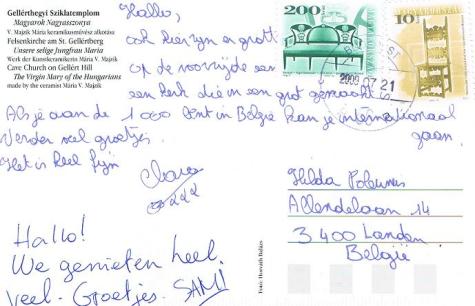 Gellérthegyi Sziklatemplom
Magyarok Nagyasszonya
V. Majzik Mária keramikusművész alkotása
Felsenkirche am St. Gellértberg
Unsere selige Jungfrau Maria
Werk der Kunstkeramikerin Mária V. Majzik
Cave Church on Gellért Hill
The Virgin Mary of the Hungarians
made by the ceramist Mária V. Majzik
Hallo,
ook hier zijn er grotten
op de voorzijde een
een kerk die in een grot gemaakt is
Als je aan de 1000 bent in België kan je internationaal
gaan.
Verder veel groetjes.
Het is heel fijn
200
10
MAGYARORSZÁG
2009 07 21
Hallo!
We genieten heel.
Veel Groetjes. SAM!
Hilda
Allendelaan 14
3400 Landen
België